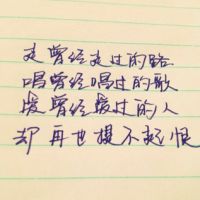 走曾经走过的路
唱曾经唱过的歌
爱曾经爱过的人
却再也提不起恨